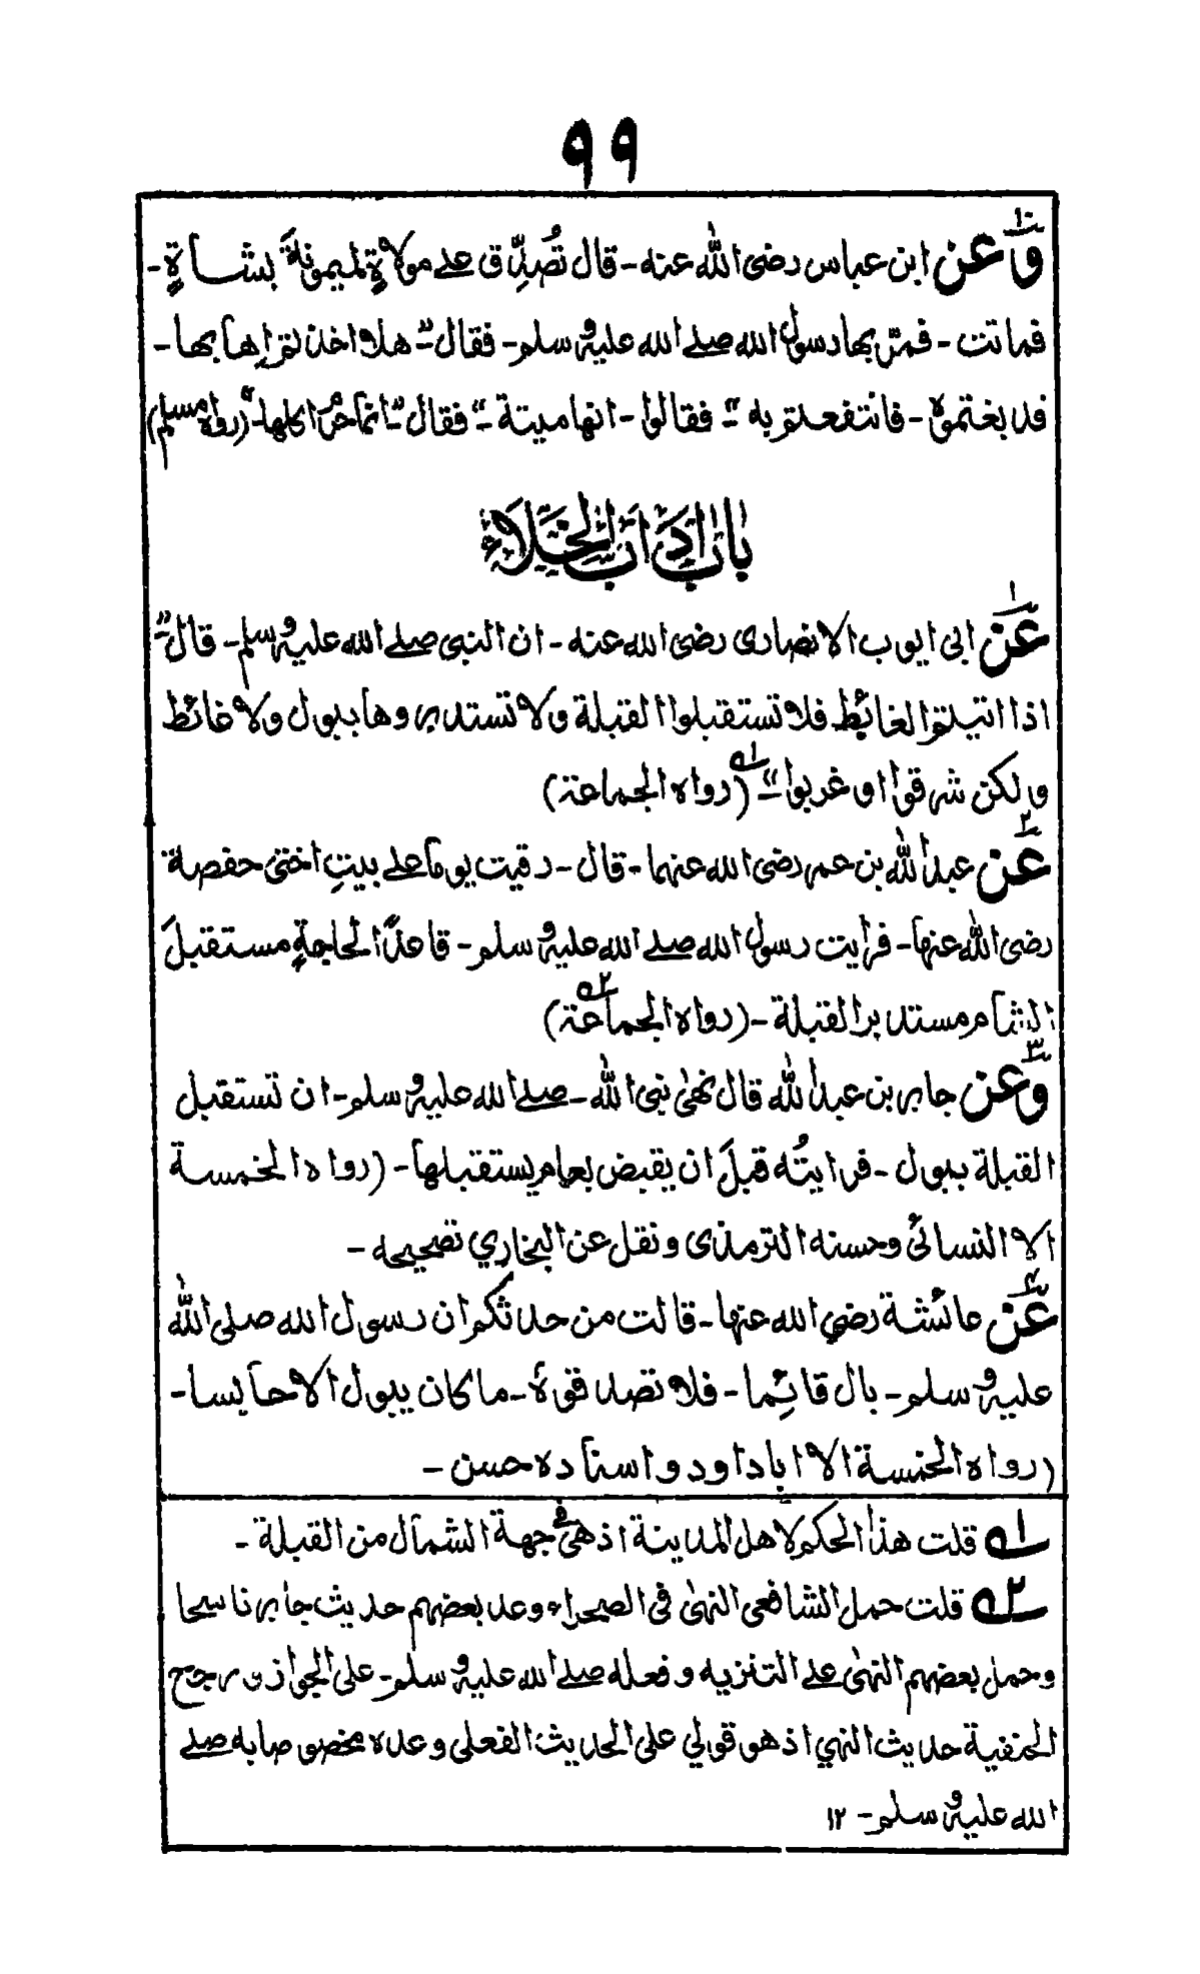 ٩٩
١٠
وعن ابن عباس رضى الله عنه - قال تُصُدِّق على مولاةٍ لميمونةَ بشاةٍ -
فماتت - فمرّ بها رسول الله صلے الله عليہ وسلم - فقال "هلا اخذتم اِهابها -
فدبغتموه - فانتفعتم به" فقالوا - انها ميتة - "فقال" انما حرم اكلها - (رواه مسلم)
باب اٰداب الخلاء
١
عن ابى ايوب الانصارى رضى الله عنه - ان النبى صلے الله عليہ وسلم - قال "
اذا اتيتم الغائط فلا تستقبلوا القبلة ولا تستدبروها ببول ولا غائط
ولكن شرقوا او غربوا" ١ـه (رواه الجماعة)
٢
عن عبد الله بن عمر رضى الله عنهما - قال - رقيت يوما على بيتِ اختى حفصة
رضى الله عنها - فرأيت رسول الله صلے الله عليہ وسلم - قاعدًا لحاجةٍ مستقبلَ
الشام مستدبر القبلة - (رواه الجماعة) ٢ـه
٣
وعن جابر بن عبد الله قال نهىٰ نبى الله - صلے الله عليہ وسلم - ان تستقبل
القبلة ببول - فرايتُه قبلَ ان يقبض بعام يستقبلها - (رواه الخمسة
الا النسائى وحسنه الترمذى ونقل عن البخاري تصحيحه -
٤
عن عائشة رضي الله عنها - قالت من حدثكم ان رسول الله صلى الله
عليہ وسلم - بال قائِما - فلا تصدقوه - ما كان يبول الا جالسا -
(رواه الخمسة الا ابا داود واسناده حسن -
١ـه قلت هذا الحكم لاهل المدينة اذ هى فى جهة الشمال من القبلة -
٢ـه قلت حمل الشافعى النهىٰ فى الصحراء وعد بعضهم حديث جابر ناسخا
وحمل بعضهم النهىٰ على التنزيه وفعله صلے الله عليہ وسلم - على الجواز ورجح
الحنفية حديث النهي اذ هو قولي على الحديث الفعلى وعده مخصوصا به صلے
الله عليہ وسلم - ١٢